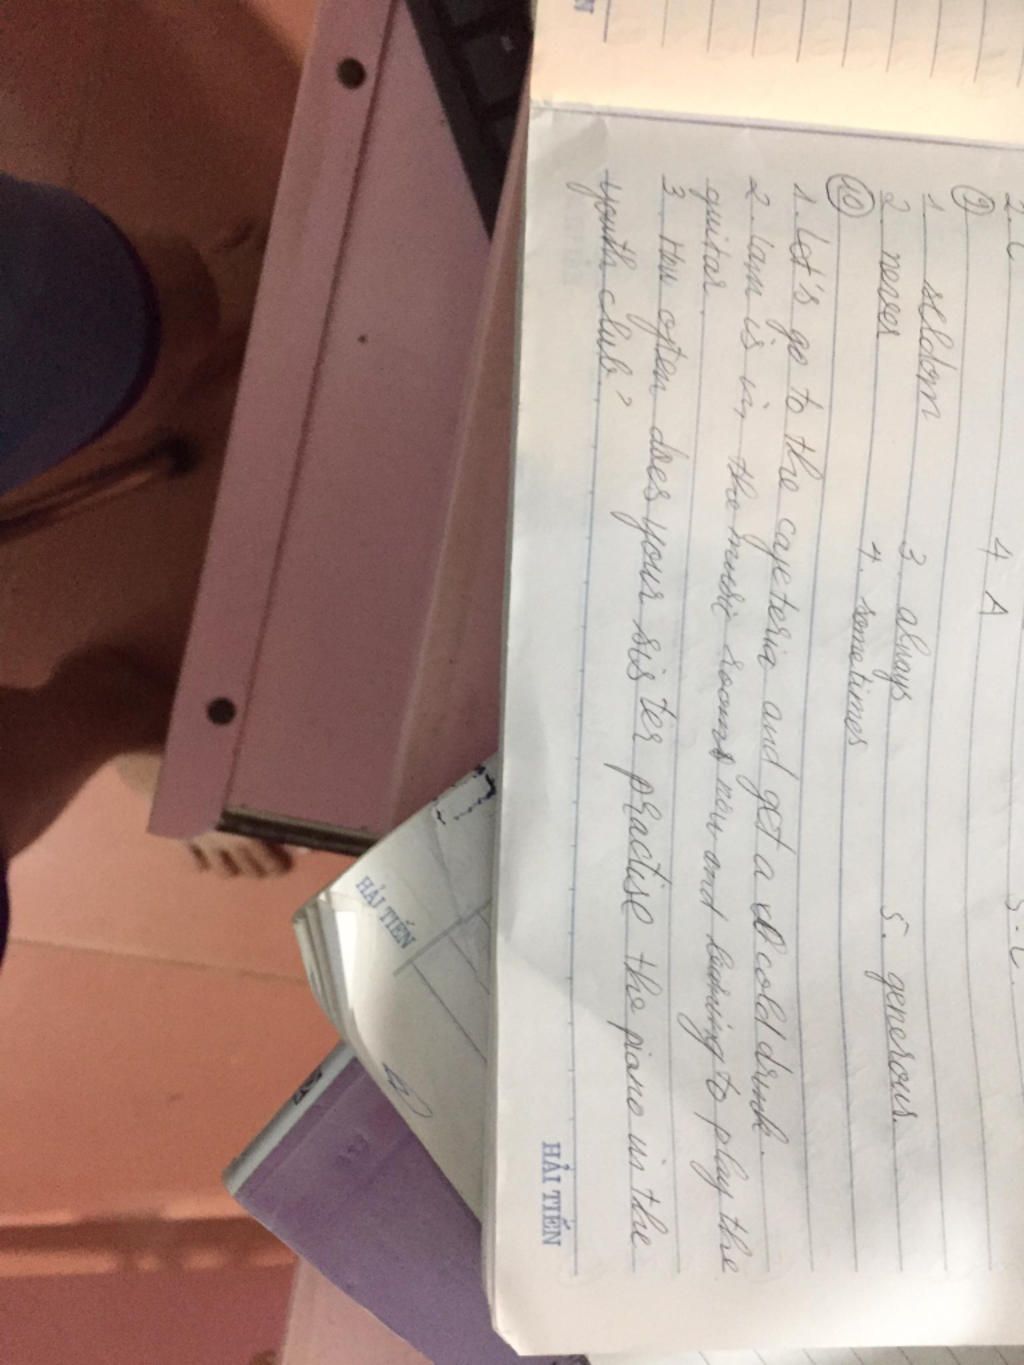 2. C 4. A 5. C.
⑨
1. seldom 3. always 5. generous.
2. never 4. sometimes
⑩
1. Let's go to the cafeteria and get a cold drink.
2. Lam is in the music room now and learning to play the
guitar.
3. How often does your sister practise the piano in the
youth club?
HẢI TIẾN
HẢI TIẾN